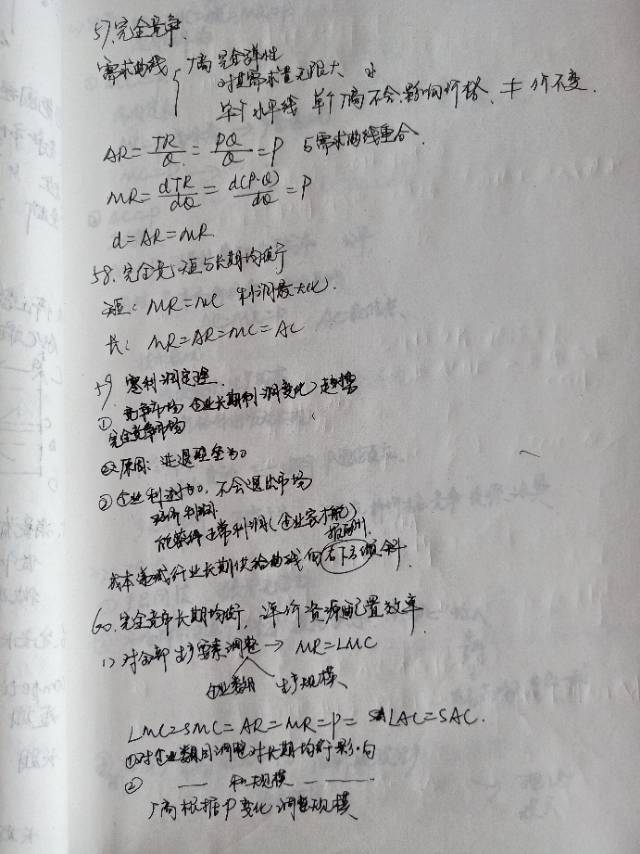 57. 完全竞争.
需求曲线 { 厂商 完全弹性
对其需求量无限大
单个 水平线 单个厂商不会影响价格, 价不变.
AR = TR/Q = PQ/Q = P 与需求曲线重合.
MR = dTR/dQ = d(P·Q)/dQ = P
d = AR = MR
58. 完全竞 短与长期均衡
短: MR = MC 利润最大化.
长: MR = AR = MC = AC
59 零利润定理.
① 竞争市场 企业长期利润变化趋势
完全竞争市场
原因: 进退壁垒为0
② 企业利润为0, 不会退出市场
经济利润
能获得正常利润(企业家才能)
报酬
成本递减行业长期供给曲线向右下方倾斜.
60. 完全竞争长期均衡, 评价资源配置效率.
1) 对全部生产要素调整 → MR = LMC
企业数目 生产规模
LMC = SMC = AR = MR = P = LAC = SAC.
① 对企业数目调整对长期均衡影响
② —— 和规模 ———
厂商根据P变化调整规模